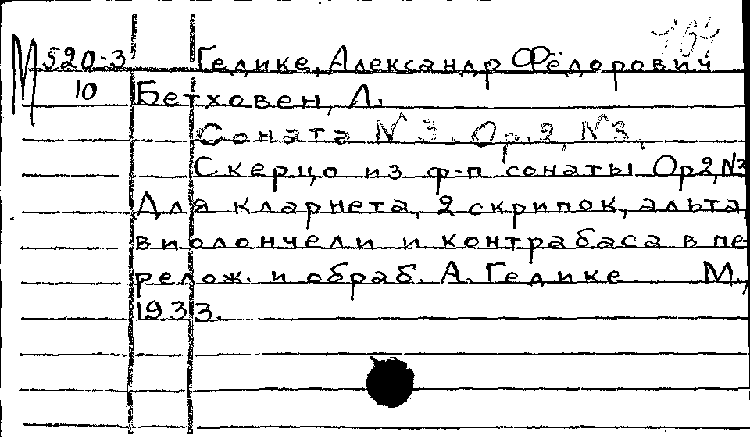 М 520-3 Гедике, Александр Фёдорович
10 Бетховен, Л.
Соната № 3. Op.2, №3.
Скерцо из ф-п сонаты Op2, №3
Для кларнета, 2 скрипок, альта,
виолончели и контрабаса в пе
релож. и обраб. А. Гедике М.,
1933.